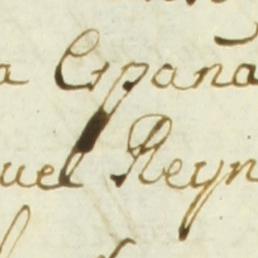 a España
uel Reyn